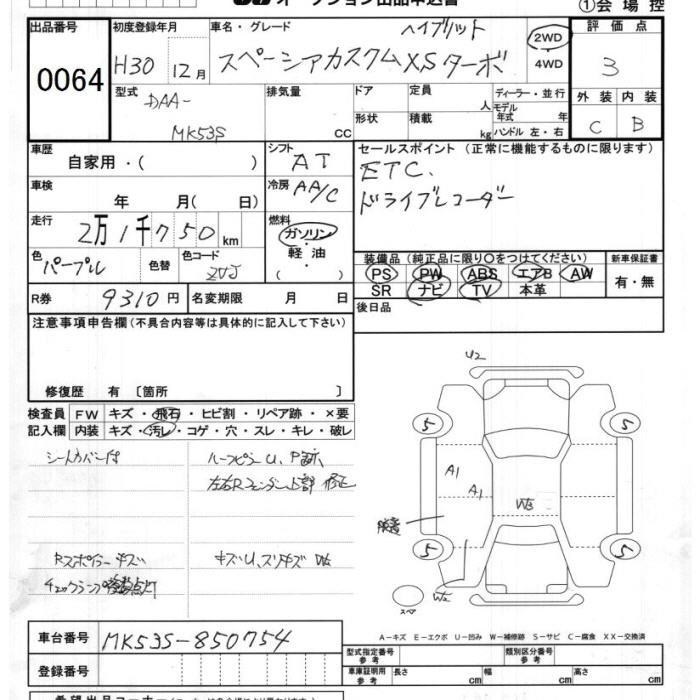 オークション出品申込書
①会場控
出品番号
0064
初度登録年月
H30 12月
車名・グレード
ハイブリット
スペーシアカスタムXSターボ
2WD
4WD
評価点
3
型式
DAA-
MK53S
排気量
CC
ドア
形状
定員
人
積載
kg
ディーラー・並行
モデル年式 年
ハンドル 左・右
外装 内装
C B
車歴
自家用・( )
シフト
AT
セールスポイント (正常に機能するものに限ります)
ETC.
ドライブレコーダー
車検
年 月( 日)
冷房
AA/C
走行
2万1千750km
燃料
ガソリン
・
軽油
・
( )
色
パープル
色替
色コード
ZVJ
装備品 (純正品に限り○をつけてください)
新車保証書
PS PW ABS エアB AW
SR ナビ TV 本革
有・無
R券
9310円
名変期限 月 日
後日品
注意事項申告欄(不具合内容等は具体的に記入して下さい)
修復歴 有 〔箇所 〕
検査員
記入欄
FW キズ・飛石・ヒビ割・リペア跡・×要
内装 キズ・汚レ・コゲ・穴・スレ・キレ・破レ
シートカバー付
ルーフピラーU、P跡、
左右Rフェンダー上部 修正
Rスポイラーキズ
チェックランプ点灯
キズU、スリキズ
U2
5
5
5
5
A1
A1
W3
W2
スペア
A-キズ E-エクボ U-凹み W-補修跡 S-サビ C-腐食 XX-交換済
車台番号
MK53S-850754
登録番号
型式指定番号
参考
類別区分番号
参考
車体証明用
参考
長さ
幅
高さ